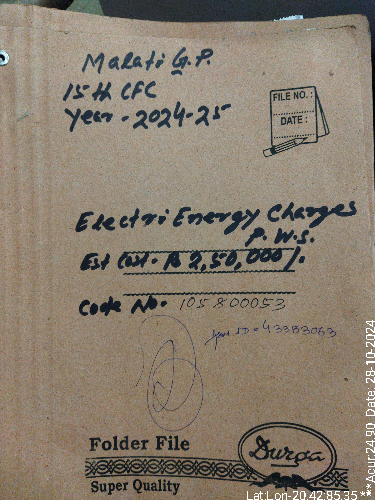 Malati G.P.
15th CFC
Year - 2024-25
FILE NO. :
DATE :
Electri Energy Charges
P.W.S.
Est Cost - Rs 2,50,000/.
Code No. 105800053
ID = 43383063
Folder File
Super Quality
Durga
Lat:Lon-20.42:85.35 ***Acur:24.90, Date: 28-10-2024